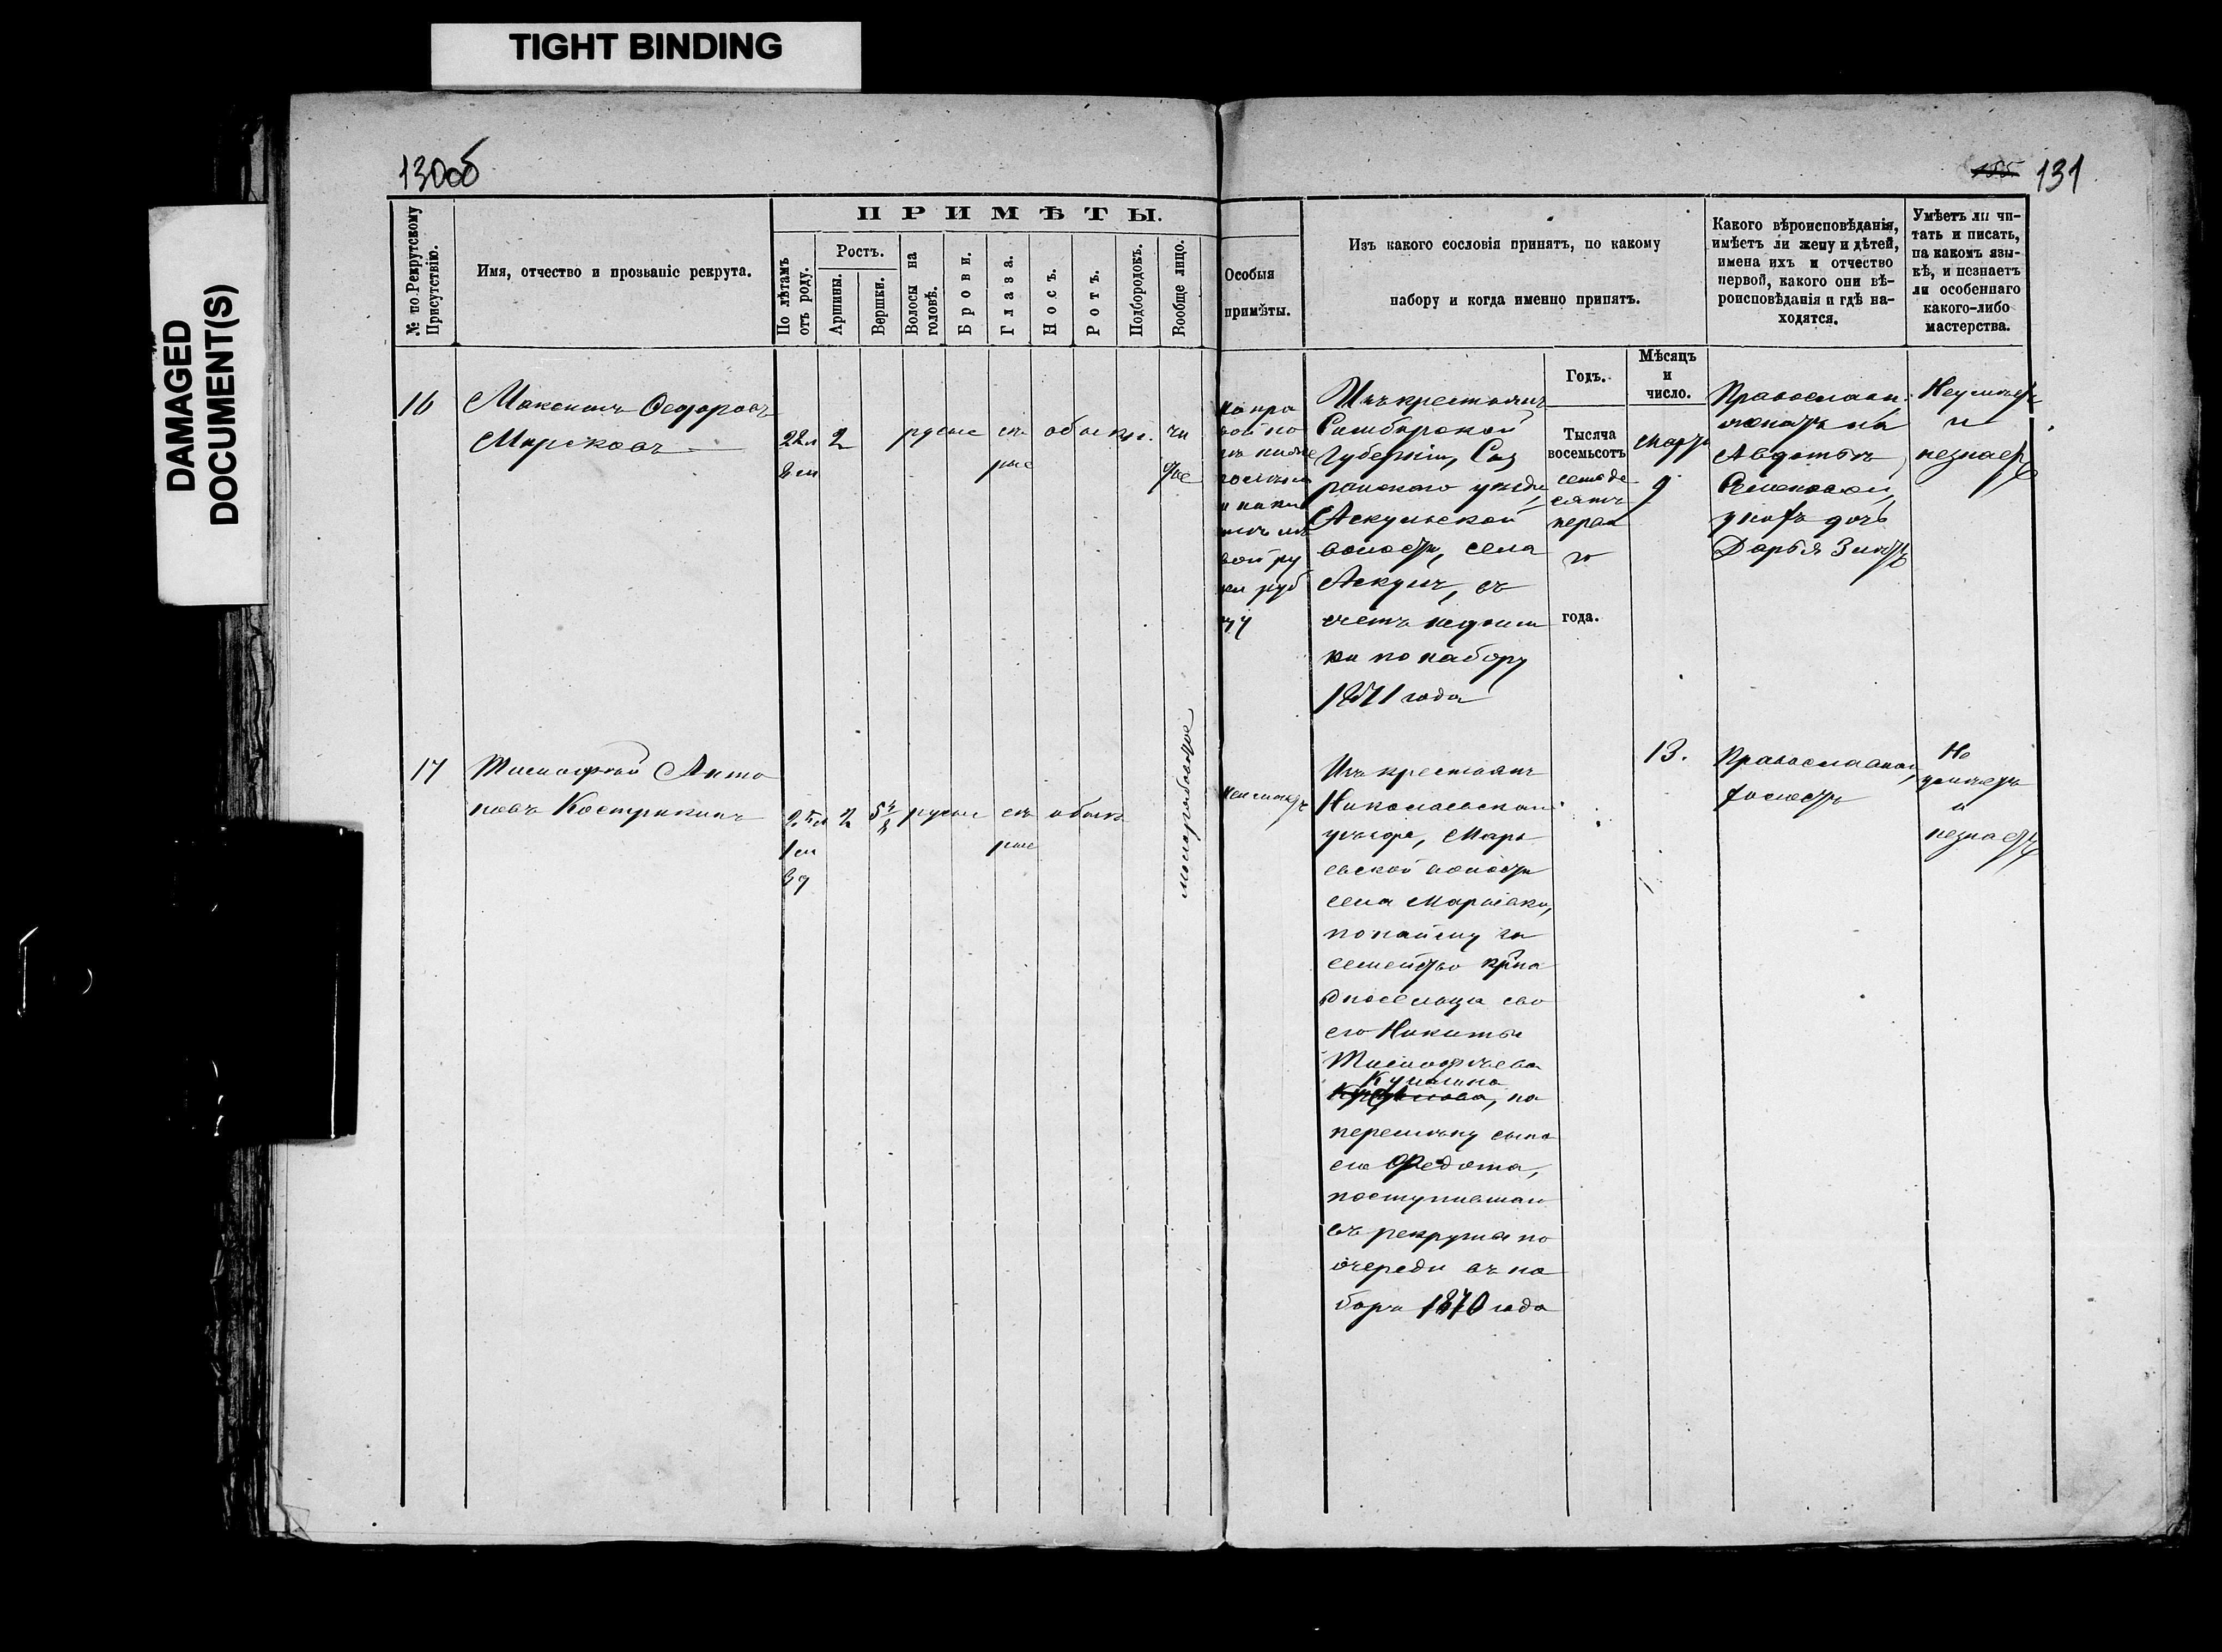 TIGHT BINDING
DAMAGED
DOCUMENT(S)
130об
155 131
№ по Рекрутскому
Присутствію.
Имя, отчество и прозваніе рекрута.
ПРИМѢТЫ.
По лѣтамъ
отъ роду.
Ростъ.
Аршины.
Вершки.
Волосы на
головѣ.
Брови.
Глаза.
Носъ.
Ротъ.
Подбородокъ.
Вообще лицо.
Особыя
примѣты.
Изъ какого сословія принятъ, по какому
набору и когда именно принятъ.
Какого вѣроисповѣданія,
имѣетъ ли жену и дѣтей,
имена ихъ и отчество
первой, какого они вѣ-
роисповѣданія и гдѣ на-
ходятся.
Умѣетъ ли чи-
тать и писать,
на какомъ язы-
кѣ, и незнаетъ
ли особеннаго
какого-либо
мастерства.
Годъ.
Мѣсяцъ
и
число.
16
Максимъ Федоровъ
Мирсковъ
22 л
8 м
2
русые
сѣ
рые
обыкн.
чи
стое
на пра
вой но
гѣ
и на
вой ру
кѣ руб
цу
Изъ крестьянъ
Симбирской
Губерніи, Сыз
ранскаго уѣзда,
Аскульской
волости, села
Аскулъ, въ
счетъ недоим
ки по набору
1871 года
Тысяча
восемьсотъ
семьде
сятъ
перва
го
года.
Марта
9
Православн.
женатъ на
Авдотьѣ
Семеновой,
у нихъ дочь
Дарья 3 лѣтъ
Неумѣетъ
и
незнаетъ
17
Тимофей Анто
новъ Кострикинъ
25 л
1 м
3 д
2
5 4/8
русые
сѣ
рые
обыкн
моложавое
Неимѣетъ
Изъ крестьянъ
Николаевскаго
уѣзда, Марь
евской волости
села Марьевки,
по найму за
семейство крна
односельца сво
его Никиты
Тимофѣева
Кумакина
на
перемѣну сына
его Федота,
поступившаго
въ рекруты по
очереди въ на
боръ 1870 года
13.
Православнаго,
холостъ
Не
умѣетъ
и
незнаетъ